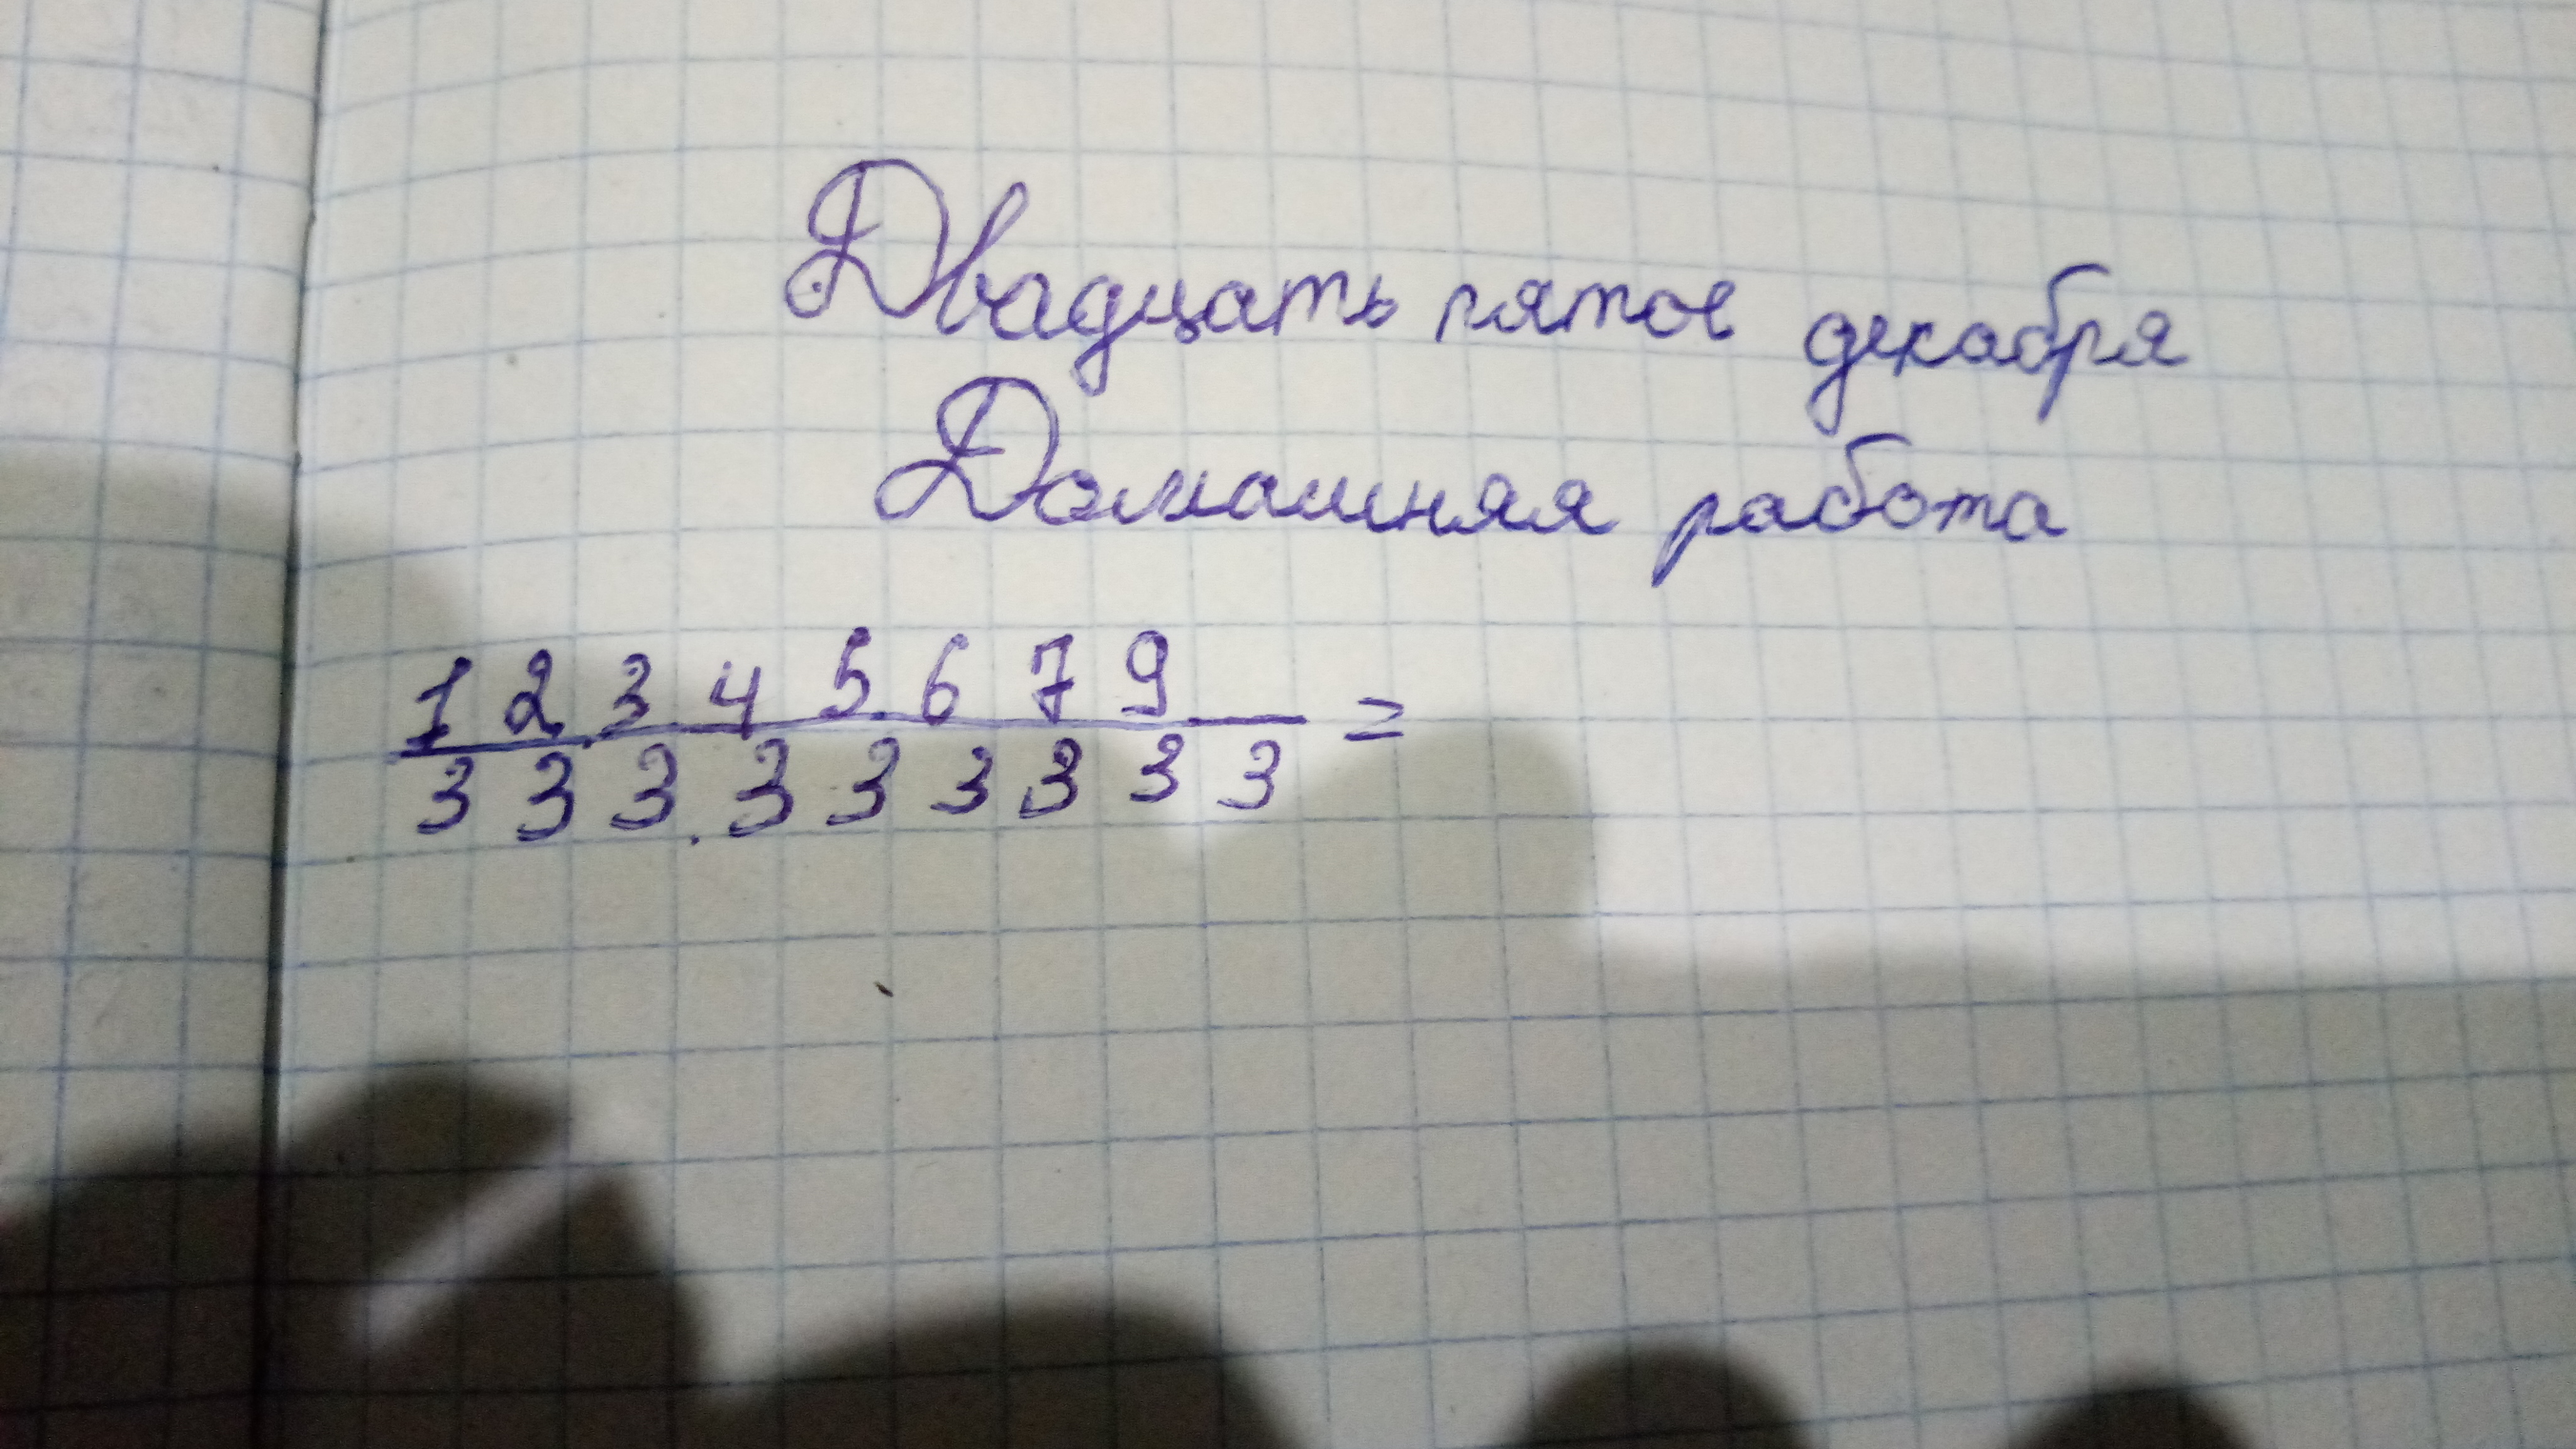 Двадцать пятое декабря
Домашняя работа
1 2 3 4 5 6 7 9 =
3 3 3 3 3 3 3 3 3